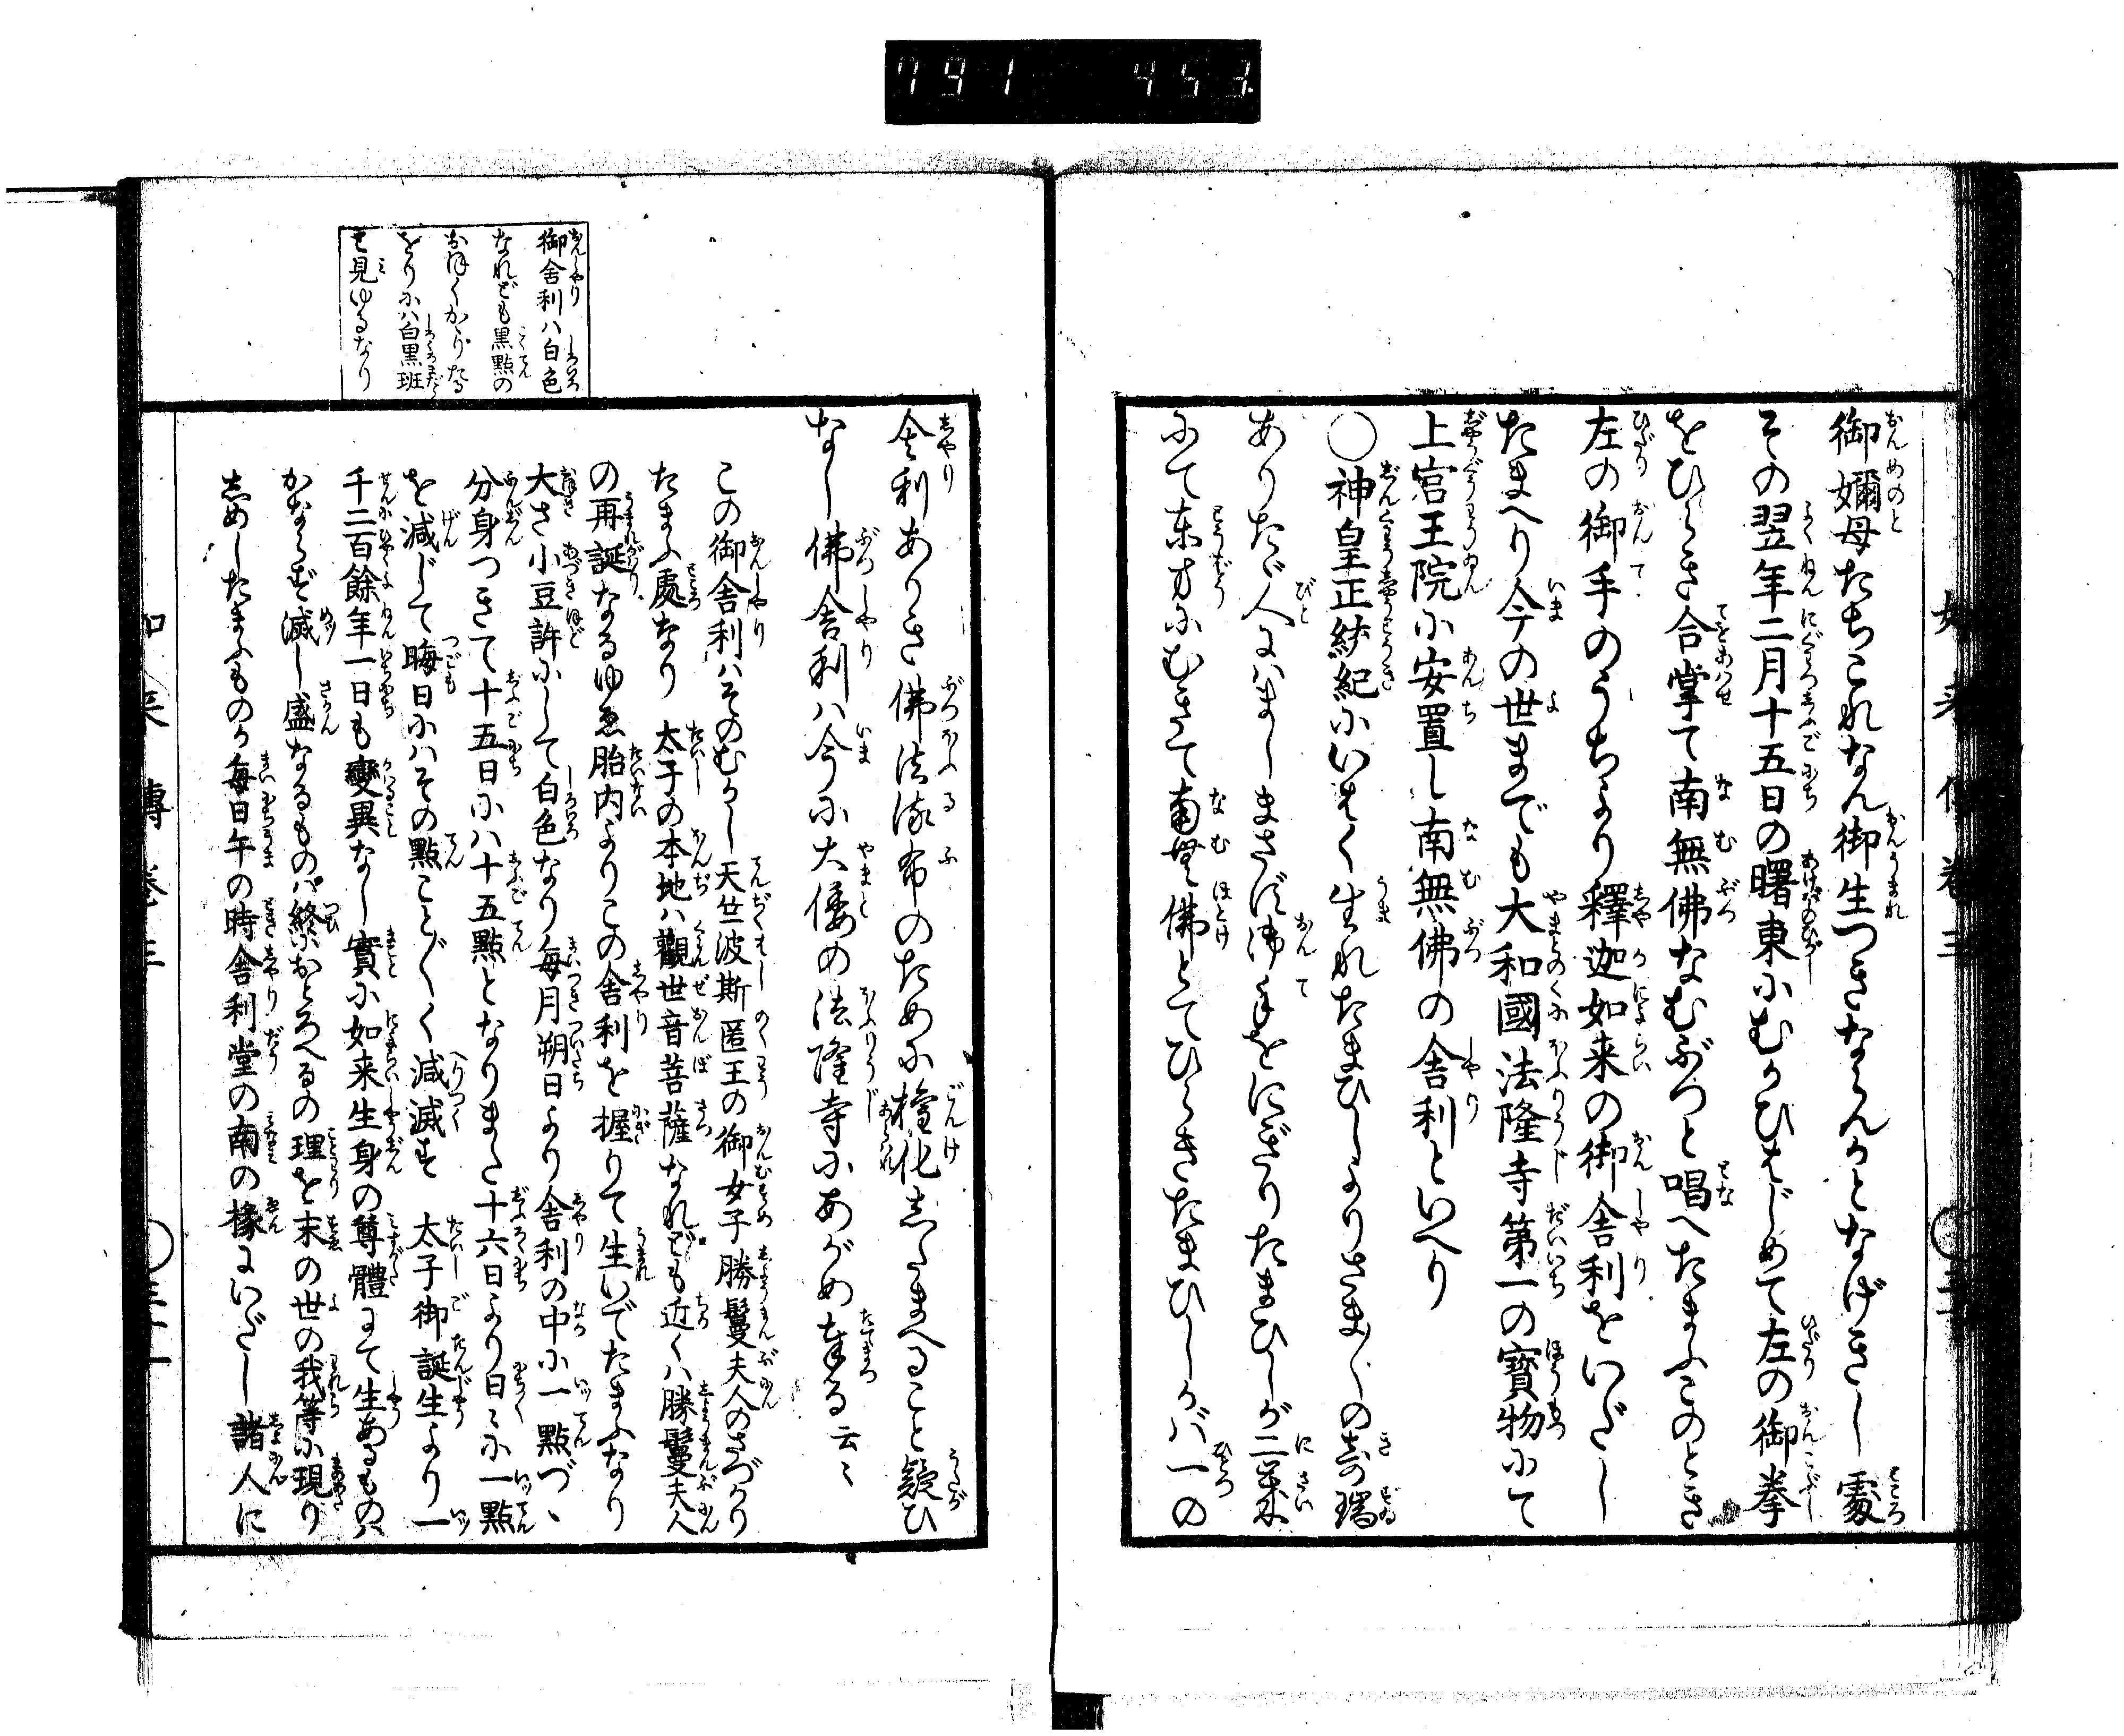 御嬭母たちこれなん御生つきならんかとなげきし處
その翌年二月十五日の曙東にむかひはじめて左の御拳
をひらき合掌て南無佛なむぶつと唱へたまふこのとき
左の御手のうちより釋迦如来の御舎利をいだし
たまへり今の世までも大和國法隆寺第一の寳物にて
上宮王院に安置し南無佛の舎利といへり
○神皇正統紀にいはく生れたまひしよりさま〴〵の奇瑞
ありたゞ人にはましまさず御手をにぎりたまひしが二歳
にて東方にむきて南無佛とてひらきたまひしかバ一の
舎利ありき佛法流布のために權化したまへること疑ひ
なし佛舎利ハ今に大倭の法隆寺にあがめ奉る云〻
御舎利ハ白色
なれども黒點の
おほくかゝりたる
をりにハ白黒班
と見ゆるなり
この御舎利ハそのむかし天竺波斯匿王の御女子勝鬘夫人のさづかり
たまふ處なり 太子の本地ハ觀世音菩薩なれども近くハ勝鬘夫人
の再誕なるゆゑ胎内よりこの舎利を握りて生いでたまふなり
大さ小豆許にして白色なり毎月朔日より舎利の中に一點づゝ
分身つきて十五日にハ十五點となりまた十六日より日〻に一點
を減じて晦日にハその點こと〴〵く減滅す 太子御誕生より一
千二百餘年一日も變異なし實に如来生身の尊體にて生あるものハ
かならず滅し盛なるものハ終におとろへるの理を末の世の我等に現り
しめしたまふものか毎日午の時舎利堂の南の椽にいだし諸人に